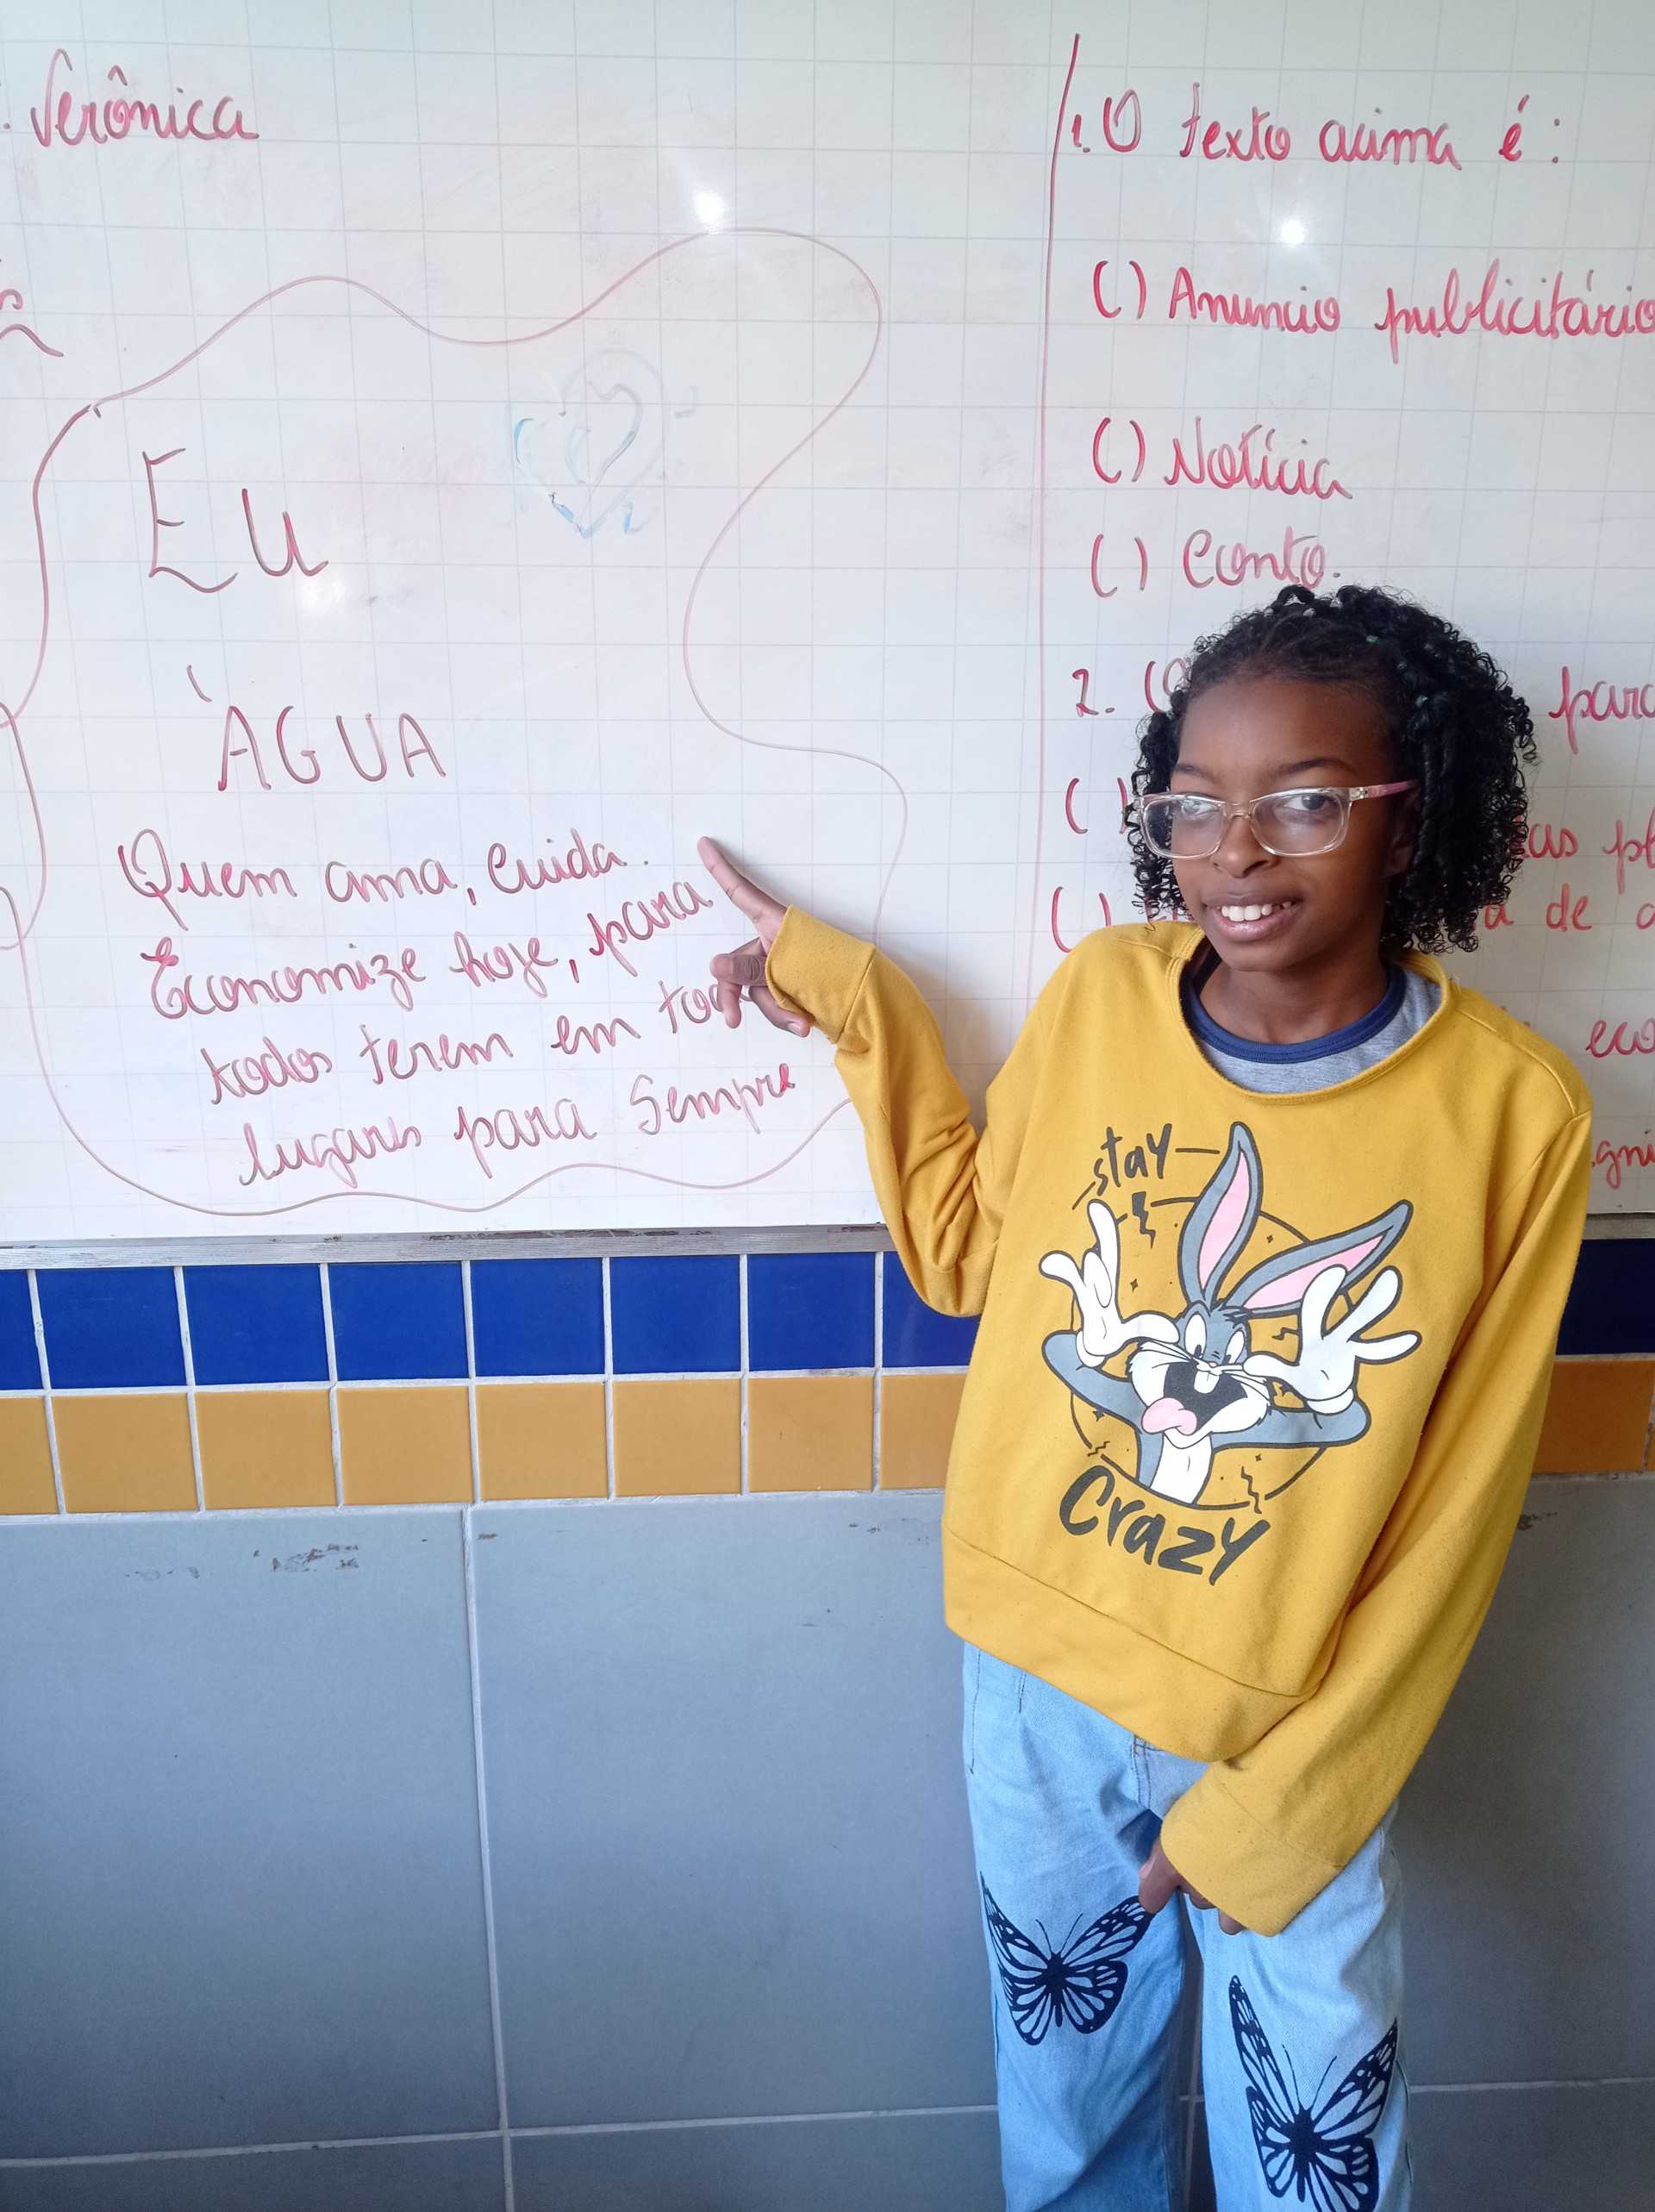 Verônica
Eu
ÁGUA
Quem ama, cuida.
Economize hoje, para
todos terem em
lugares para Sempre
1. O texto acima é:
( ) Anuncio publicitário
( ) Notícia
( ) Conto.
2.
( )
( ) de
stay
Crazy